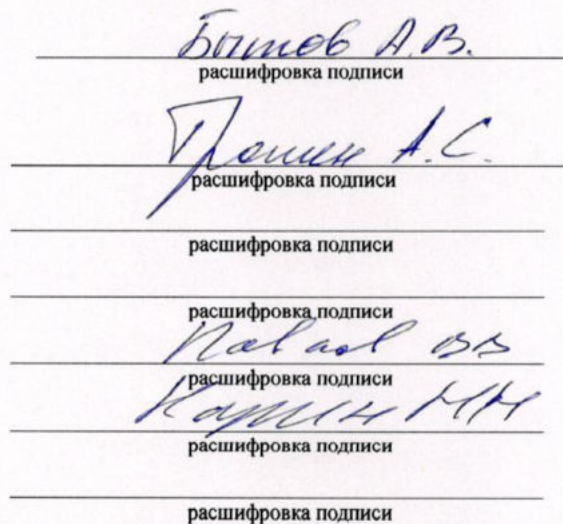 Бытов А.В.
расшифровка подписи
А.С.
расшифровка подписи
расшифровка подписи
расшифровка подписи
ВВ
расшифровка подписи
расшифровка подписи
расшифровка подписи